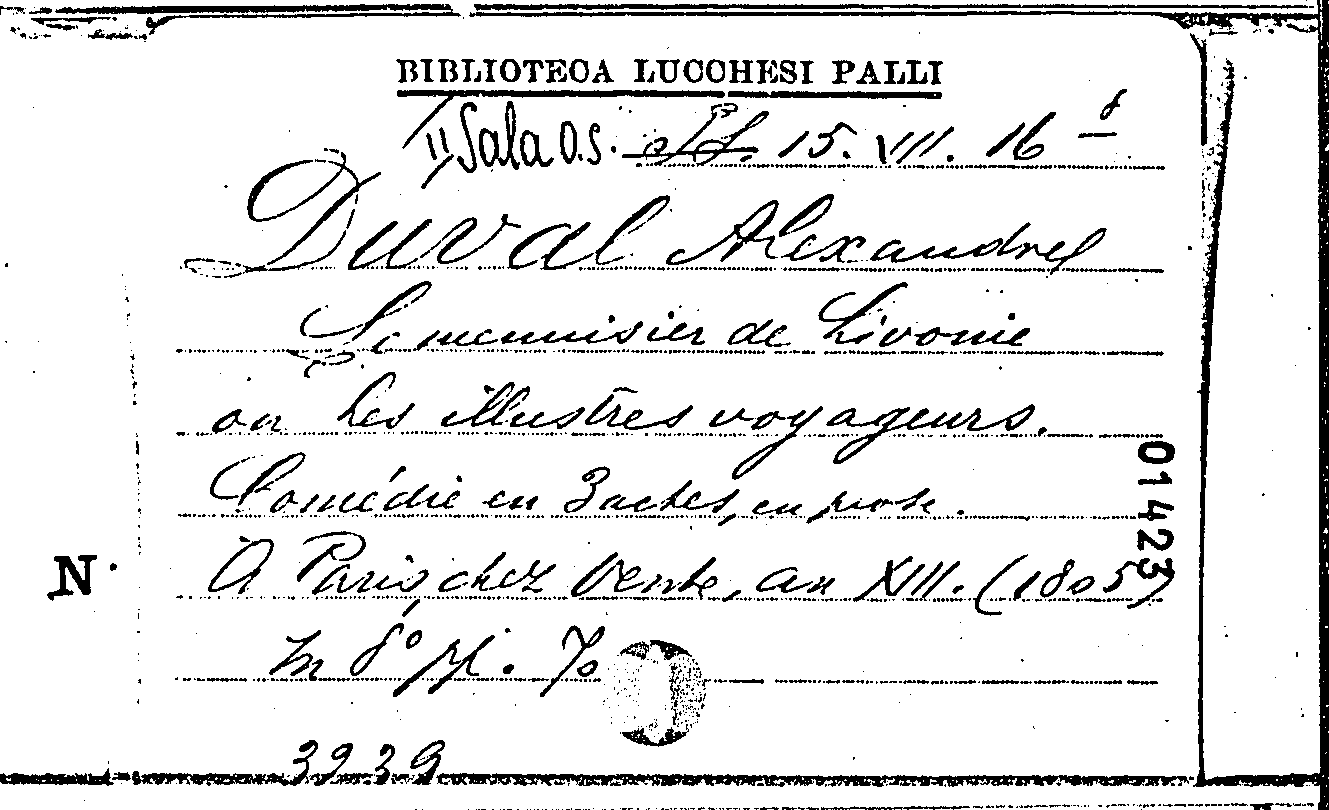 BIBLIOTECA LUCCHESI PALLI
II Sala O.S. 15. VII. 16 8
Duval Alexandre
Le menuisier de Livonie
ou Les illustres voyageurs.
Comédie en 3 actes, en prose.
A Paris, chez Vente, an XIII. (1805)
In 8° pp. 70
3939
N.
01423